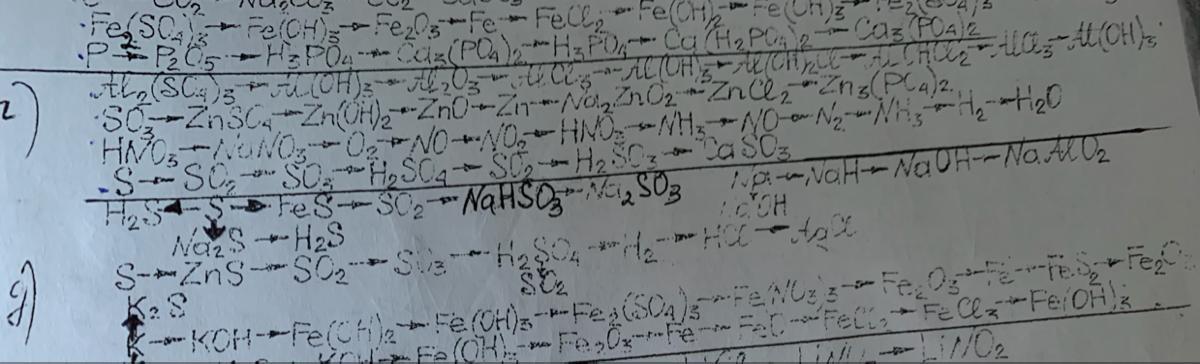 CO₂ → Na₂CO₃ → CO₂
Fe₂(SO₄)₃ → Fe(OH)₃ → Fe₂O₃ → Fe → FeCl₂ → Fe(OH)₂ → Fe(OH)₃ → Fe₂(SO₄)₃
P → P₂O₅ → H₃PO₄ → Ca₃(PO₄)₂ → H₃PO₄ → Ca(H₂PO₄)₂ → Ca₃(PO₄)₂
Al₂(SO₄)₃ → Al(OH)₃ → Al₂O₃ → AlCl₃ → Al(OH)₃ → Al(OH)₂Cl → AlOHCl₂ → AlCl₃ → Al(OH)₃
г) SO₃ → ZnSO₄ → Zn(OH)₂ → ZnO → Zn → Na₂ZnO₂ → ZnCl₂ → Zn₃(PO₄)₂
HNO₃ → NaNO₃ → O₂ → NO → NO₂ → HNO₃ → NH₃ → NO → N₂ → NH₃ → H₂ → H₂O
S → SO₂ → SO₃ → H₂SO₄ → SO₂ → H₂SO₃ → CaSO₃
H₂S ◄ S → FeS → SO₂ → NaHSO₃ → Na₂SO₃
Na → NaH → NaOH → NaAlO₂
NaOH
Na₂S → H₂S
S → ZnS → SO₂ → SO₃ → H₂SO₄ → H₂ → HCl → AgCl
SO₂
д) K₂S
K → KOH → Fe(OH)₂ → Fe(OH)₃ → Fe₂(SO₄)₃ → Fe(NO₃)₃ → Fe₂O₃ → Fe → FeS₂ → Fe₂O₃
KOH → Fe(OH)₃ → Fe₂O₃ → Fe → FeO → FeCl₂ → FeCl₃ → Fe(OH)₃
→ LiNO₂